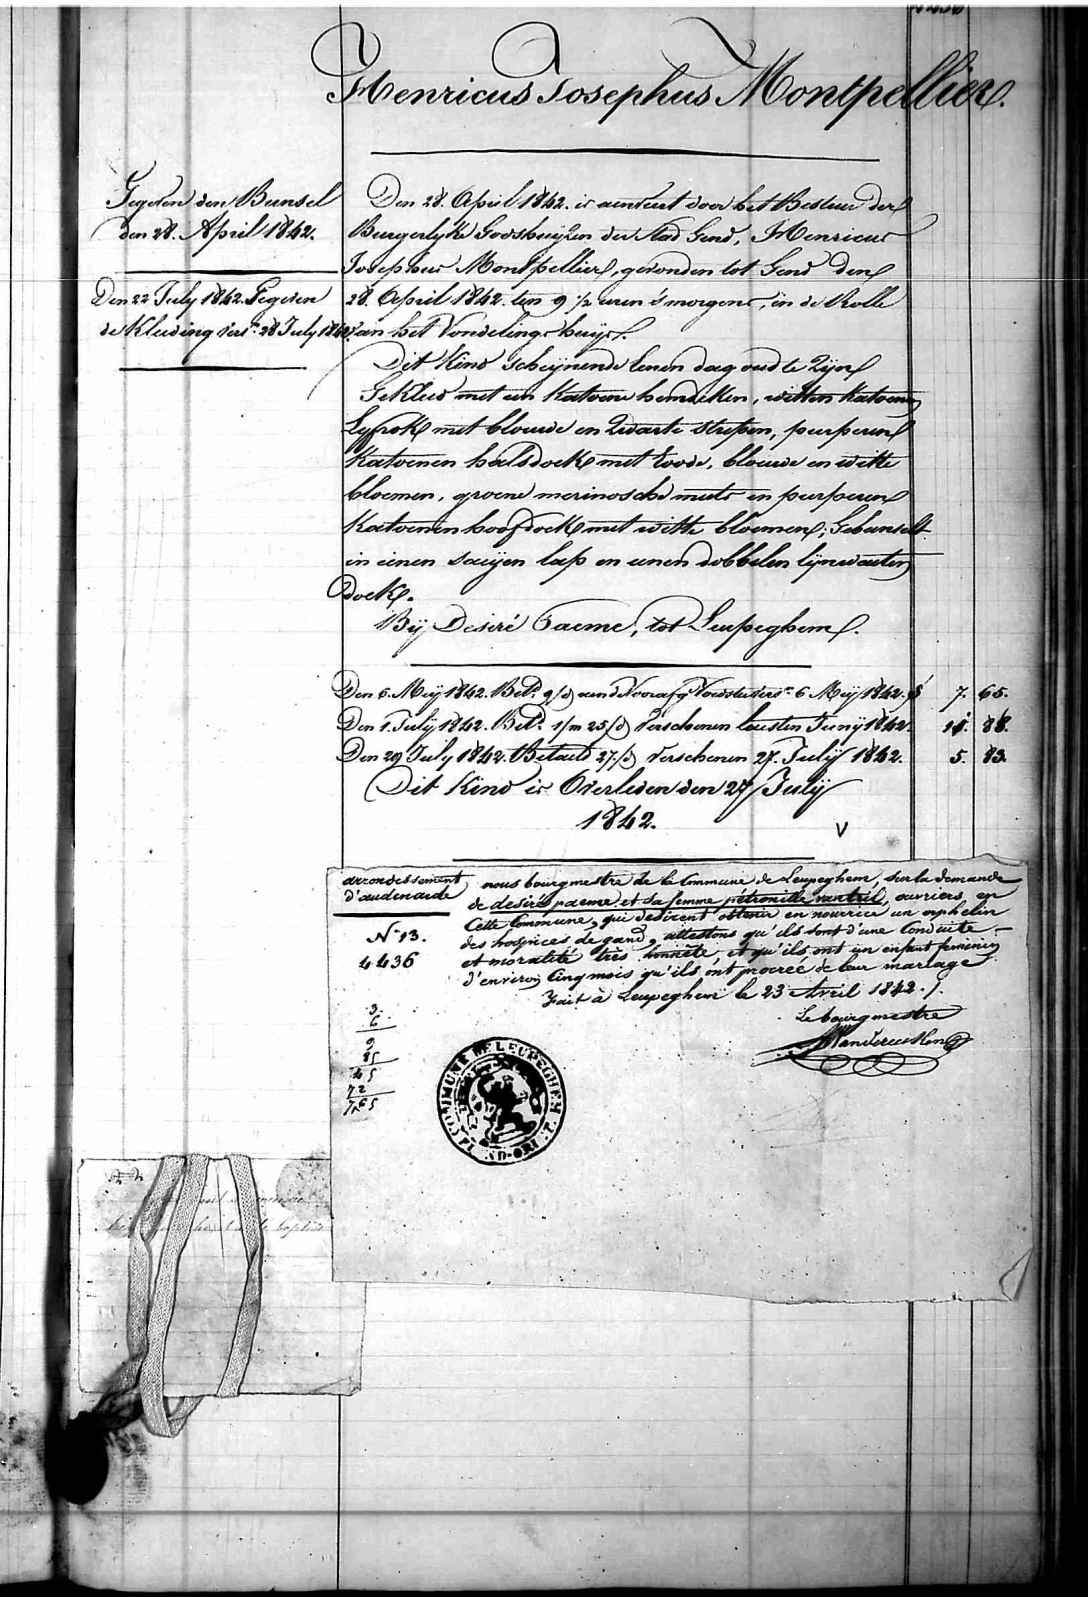 Henricus Josephus Montpellier.
Gegeven den Bunsel
den 28. April 1842.
Den 22 July 1842. Gegeven
de Kleeding vers.n 28 July 1842.
Den 28. April 1842. is aenveert door het Bestuer der
Burgerlyke Godshuyzen der Stad Gend, Henricus
Josephus Montpellier, gevonden tot Gend den
28. April 1842. ten 9 1/2 uren s'morgens, in de Rolle
van het Vondelingshuys.
Dit Kind scheynende eenen dag oud te Zijn
Gekleed met een Katoene hemdeken, witten Katoenen
Lyfrok met blouwe en Zwarte strepen, purperen
Katoenen halsdoek met roode, blouwe en witte
bloemen, groene merinosche muts en purperen
Katoenen hoofdoek met witte bloemen; Gebunselt
in eenen saeijen lap en eenen dobbelen lijnwaeten
doek.
Bij Desiré Paeme, tot Leupeghem.
Den 6. Meij 1842. Bet.d 9/d aen de Vooraf 6 Meij 1842. 7. 65.
Den 1. July 1842. Bet.d 1/m 25/d Verschenen lesten Junij 1842. 11. 88.
Den 29 July 1842. Betaeld 27/d Verschenen 27. Julij 1842. 5. 83.
Dit Kind is Overleden den 27 Julij
1842.
V
arrondissement
d'audenaerde
N° 13.
4436
nous bourgmestre de la Commune de Leupeghem, sur la demande
de desiré paeme et sa femme pétronille vantieil, ouvriers, en
Cette Commune, qui desirent obtenir en nourrice un orphelin
des hospices de gand, attestons qu'ils sont d'une Conduite
et moralité très honnète, et qu'ils ont un enfant feminin
d'environ Cinq mois qu'ils ont procreé de leur mariage
Fait à Leupeghem le 23 Avril 1842.
Le bourgmestre
3
6
9
45
72
7,65
COMMUNE DE LEUPEGHEM